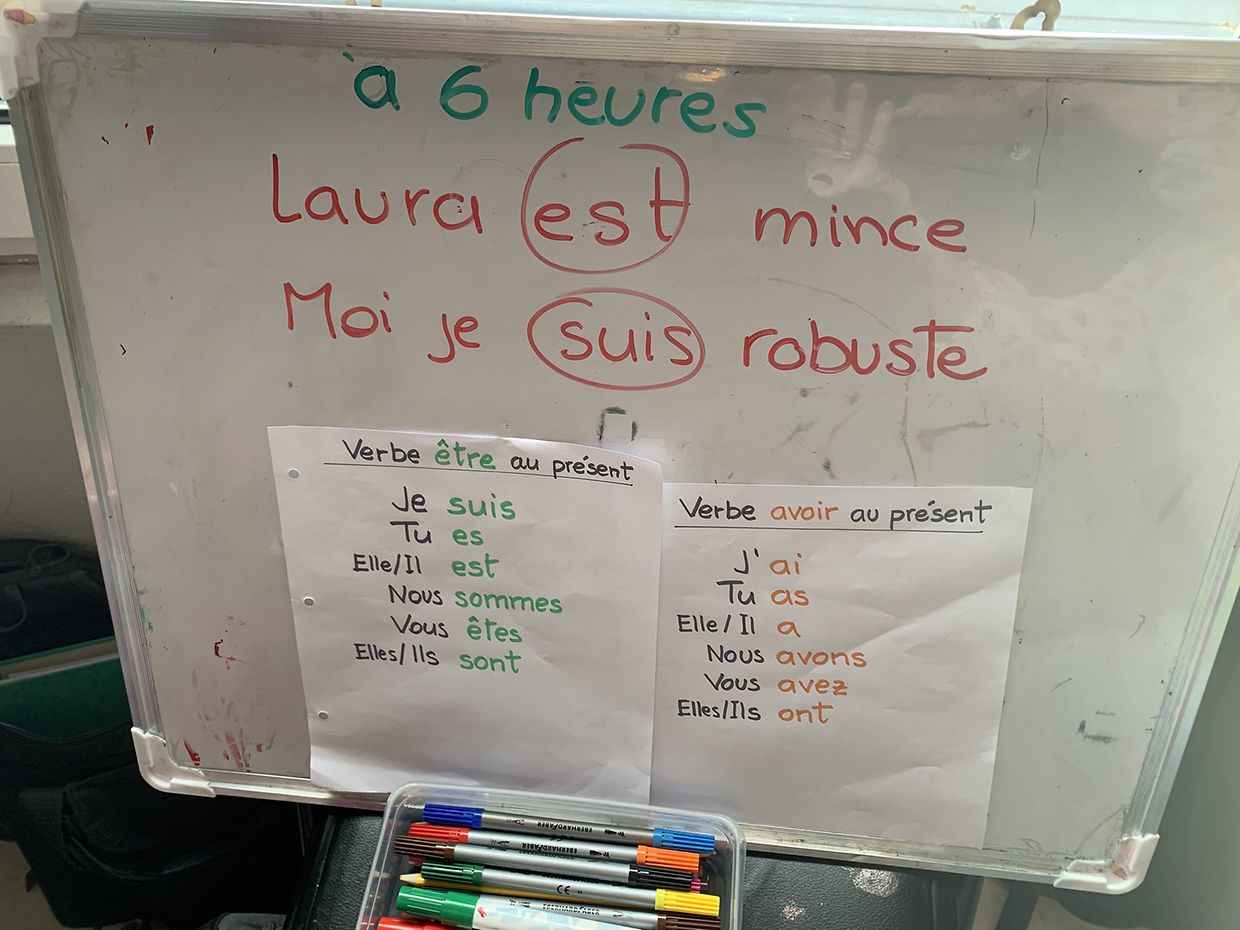 à 6 heures
Laura est mince
Moi je suis robuste
Verbe être au présent
Je suis
Tu es
Elle/Il est
Nous sommes
Vous êtes
Elles/Ils sont
Verbe avoir au présent
J' ai
Tu as
Elle/Il a
Nous avons
Vous avez
Elles/Ils ont
EBERHARD FABER
EBERHARD FABER
CE
EBERHARD FABER